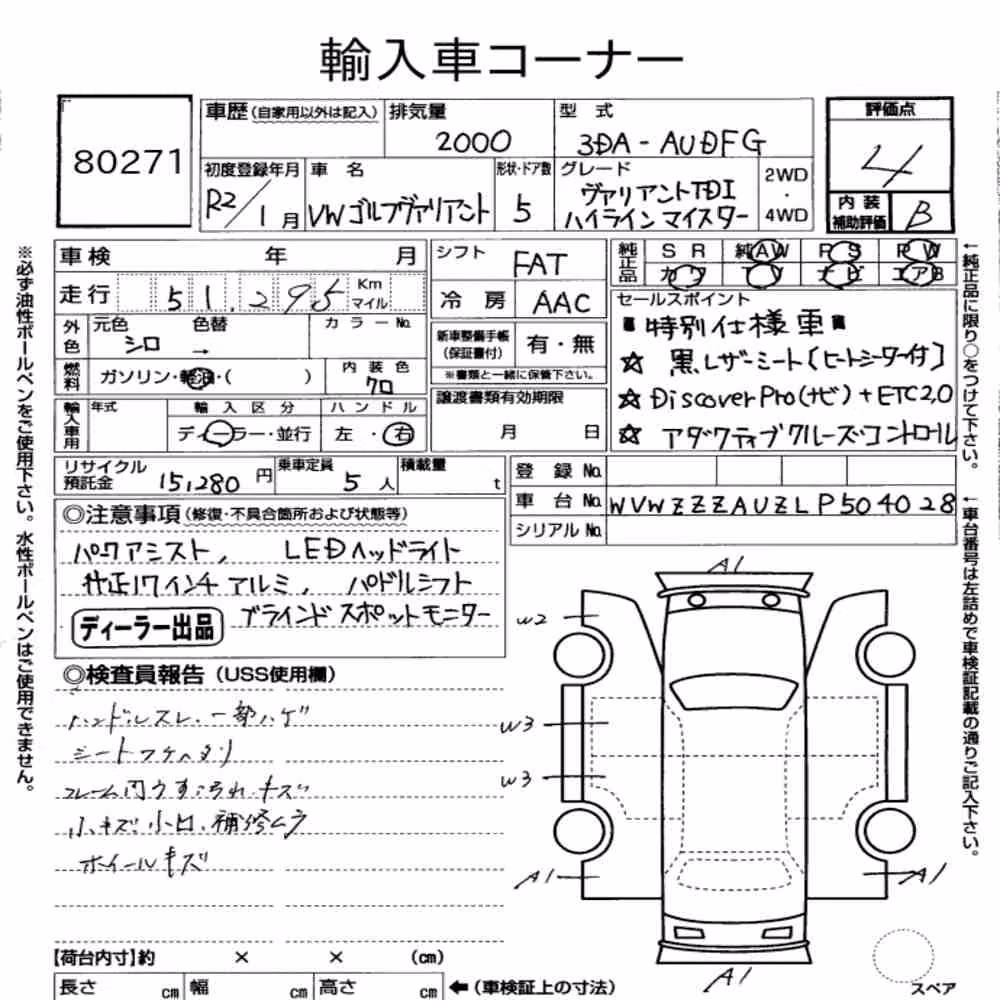 輸入車コーナー
80271
車歴(自家用以外は記入)
排気量
2000
型 式
3DA-AUDFG
評価点
4
内装補助評価
B
初度登録年月
R2/1月
車 名
VWゴルフヴァリアント
形状・ドア数
5
グレード
ヴァリアントTDI
ハイラインマイスター
2WD
・
4WD
車検 年 月
シフト
FAT
純正品
SR 純AW PS PW
カワ TV ナビ エアB
走行 51,295 Km マイル
冷房
AAC
セールスポイント
"特別仕様車"
☆ 黒レザーシート(ヒートシーター付)
☆ DiscoverPro(ナビ)+ETC2.0
☆ アダクティブクルーズコントロール
外色
元色 色替 カラーNo.
シロ →
新車整備手帳
(保証書付)
有・無
※書類と一緒に保管下さい。
燃料
ガソリン・軽油・( )
内装色
クロ
譲渡書類有効期限
月 日
輸入車用
年式
輸入区分
ディーラー・並行
ハンドル
左・右
リサイクル預託金
15,280円
乗車定員
5人
積載量
t
登録No.
車台No.
WVWZZZAUZLP504028
シリアルNo.
◎注意事項(修復・不具合箇所および状態等)
パークアシスト, LEDヘッドライト
社正17インチアルミ, パドルシフト
ディーラー出品
ブラインドスポットモニター
◎検査員報告(USS使用欄)
ハンドルスレ、一部ハゲ
シートフケヘタリ
フレーム内うす汚れ、キズ
小キズ、小凹、補修ムラ
ホイールキズ
A1
W2
W3
W3
A1
A1
A1
【荷台内寸】約 × × (cm)
長さ cm 幅 cm 高さ cm
←(車検証上の寸法)
スペア
※必ず油性ボールペンをご使用下さい。水性ボールペンはご使用できません。
←純正品に限り○をつけて下さい。
←車台番号は左詰めで車検証記載の通りご記入下さい。